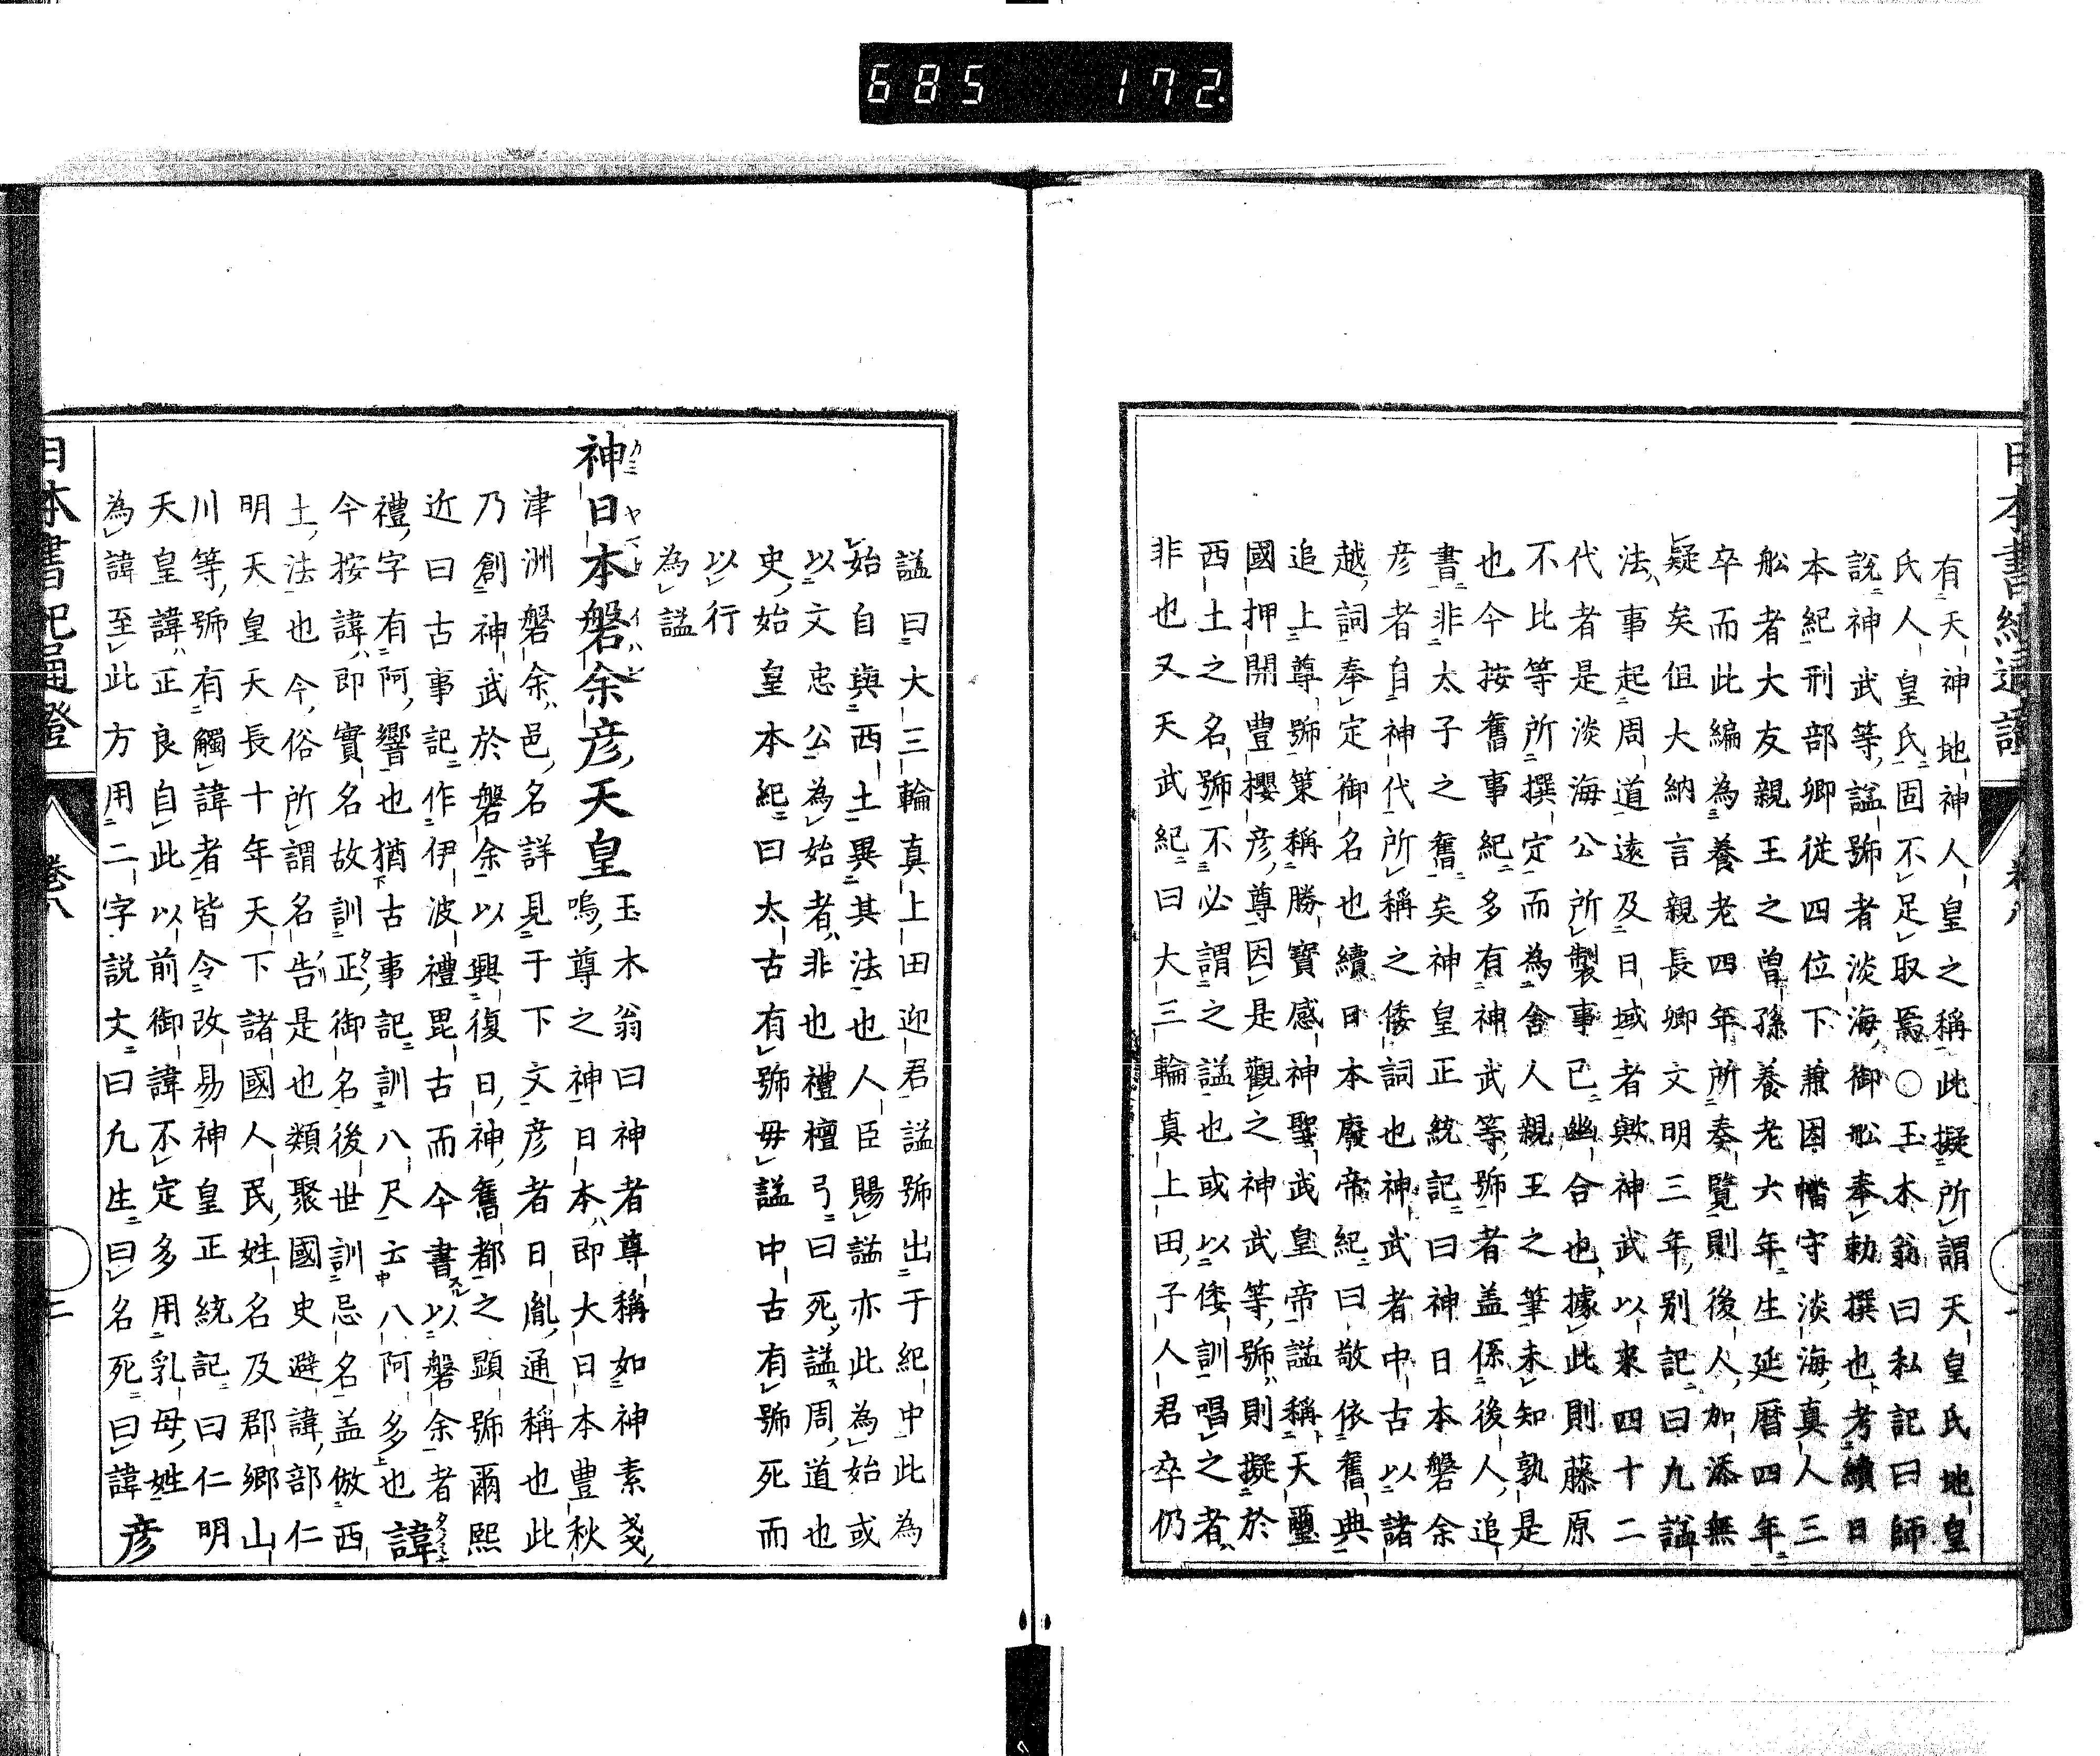 685 172
有天神地神人皇之稱此擬所謂天皇氏地皇
氏人皇氏固不足取焉○玉木翁曰私記曰師
說神武等謚號者淡海御舩奉勅撰也考續日
本紀刑部卿從四位下兼因幡守淡海真人三
舩者大友親王之曽孫養老六年生延暦四年
卒而此編為養老四年所奏覽則後人加添無
疑矣但大納言親長卿文明三年別記曰九謚
法事起周道遠及日域者歟神武以来四十二
代者是淡海公所製事已幽合也據此則藤原
不比等所撰定而為舍人親王之筆未知孰是
也今按舊事紀多有神武等號者盖係後人追
書非太子之舊矣神皇正統記曰神日本磐余
彦者自神代所稱之倭詞也神武者中古以諸
越詞奉定御名也續日本廢帝紀曰敬依舊典
追上尊號策稱勝寳感神聖武皇帝謚稱天璽
國押開豊櫻彦尊因是觀之神武等號則擬於
西土之名號不必謂之謚也或以倭訓唱之者
非也又天武紀曰大三輪真上田子人君卒仍
謚曰大三輪真上田迎君謚號出于紀中此為
始自與西土異其法也人臣賜謚亦此為始或
以文忠公為始者非也禮檀弓曰死謚周道也
史始皇本紀曰太古有號毋謚中古有號死而
以行
為謚
神日本磐余彦天皇 玉木翁曰神者尊稱如神素戔
嗚尊之神日本即大日本豊秋
津洲磐余邑名詳見于下文彦者日胤通稱也此
乃創神武於磐余以興復日神舊都之顯號爾熙
近曰古事記作伊波禮毘古而今書以磐余者
禮字有阿響也猶古事記訓八尺云八阿多也 諱
今按諱即實名故訓正御名後世訓忌名盖倣西
土法也今俗所謂名告是也類聚國史避諱部仁
明天皇天長十年天下諸國人民姓名及郡鄉山
川等號有觸諱者皆令改易神皇正統記曰仁明
天皇諱正良自此以前御諱不定多用乳母姓
為諱至此方用二字說文曰九生曰名死曰諱 彦